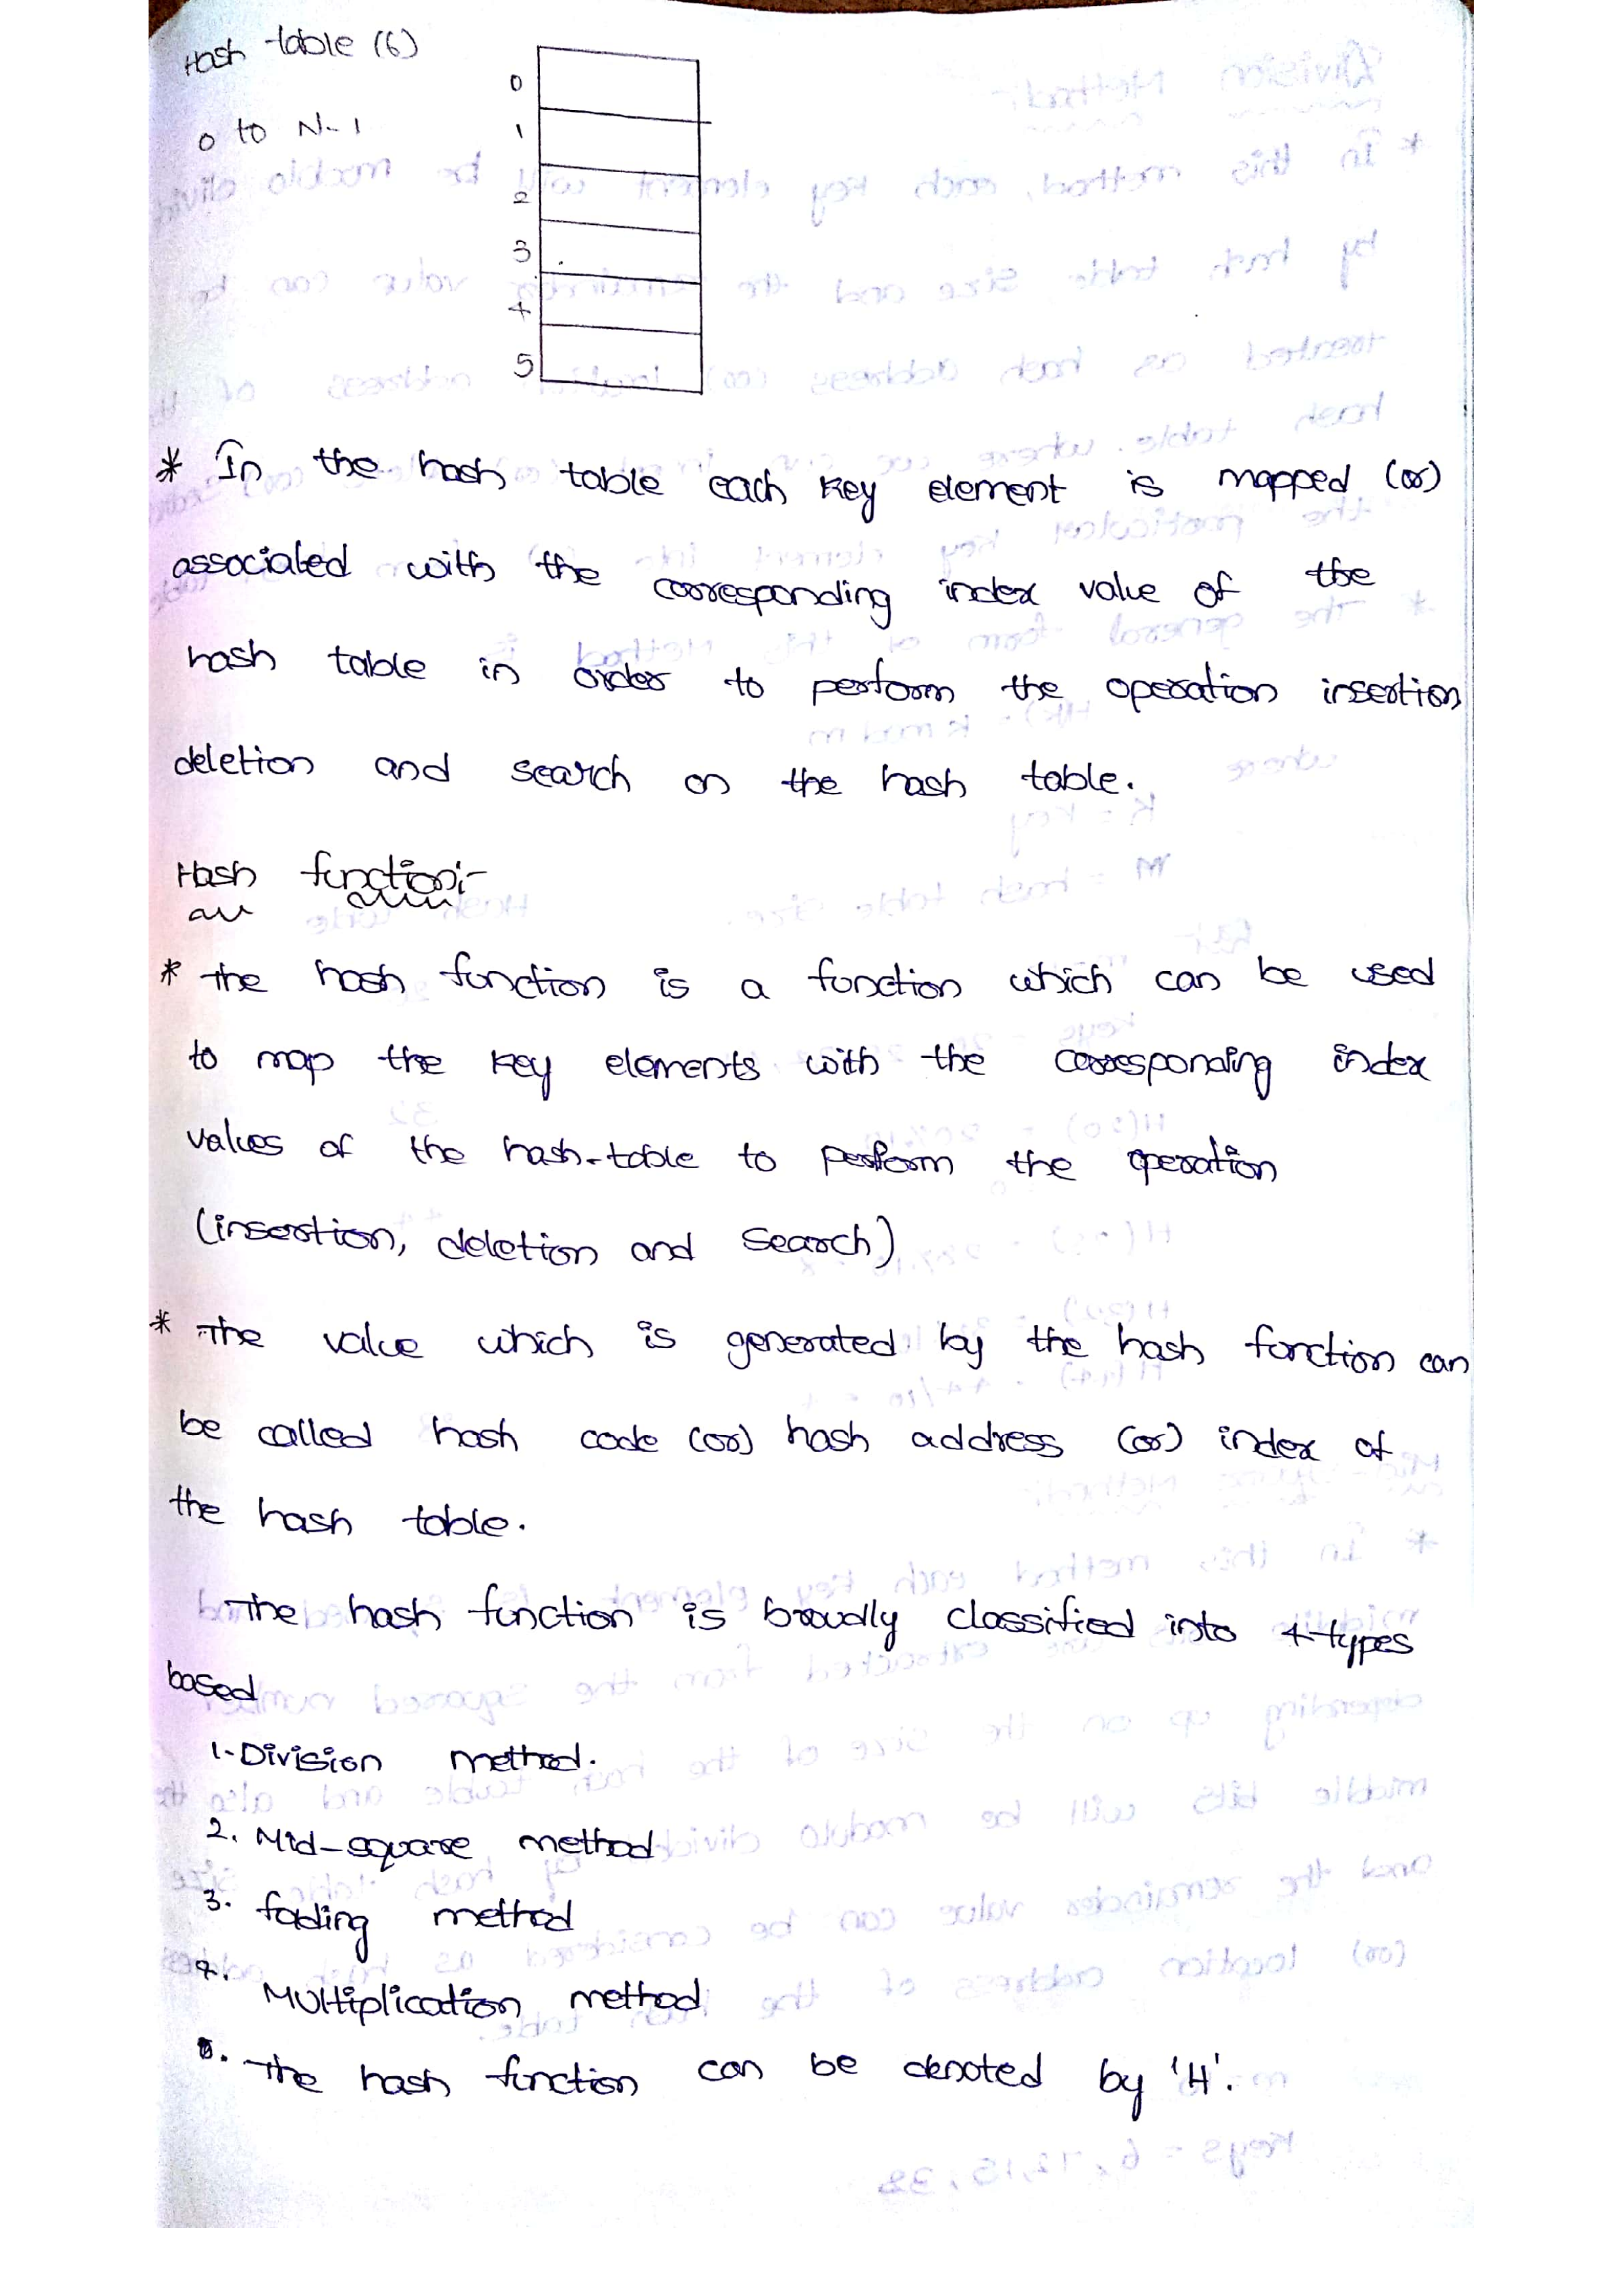 Hash table (6)
0 to N-1
0
1
2
3
4
5
* In the hash table each key element is mapped (or)
associated with the corresponding index value of the
hash table in order to perform the operation insertion
deletion and search on the hash table.
Hash function:-
* the hash function is a function which can be used
to map the key elements with the corresponding index
values of the hash-table to perform the operation
(insertion, deletion and search)
* The value which is generated by the hash function can
be called hash code (or) hash address (or) index of
the hash table.
The hash function is broudly classified into 4-types
based
1-Division method.
2. Mid-square method
3. fading method
4. Multiplication method
5. The hash function can be denoted by 'H'.